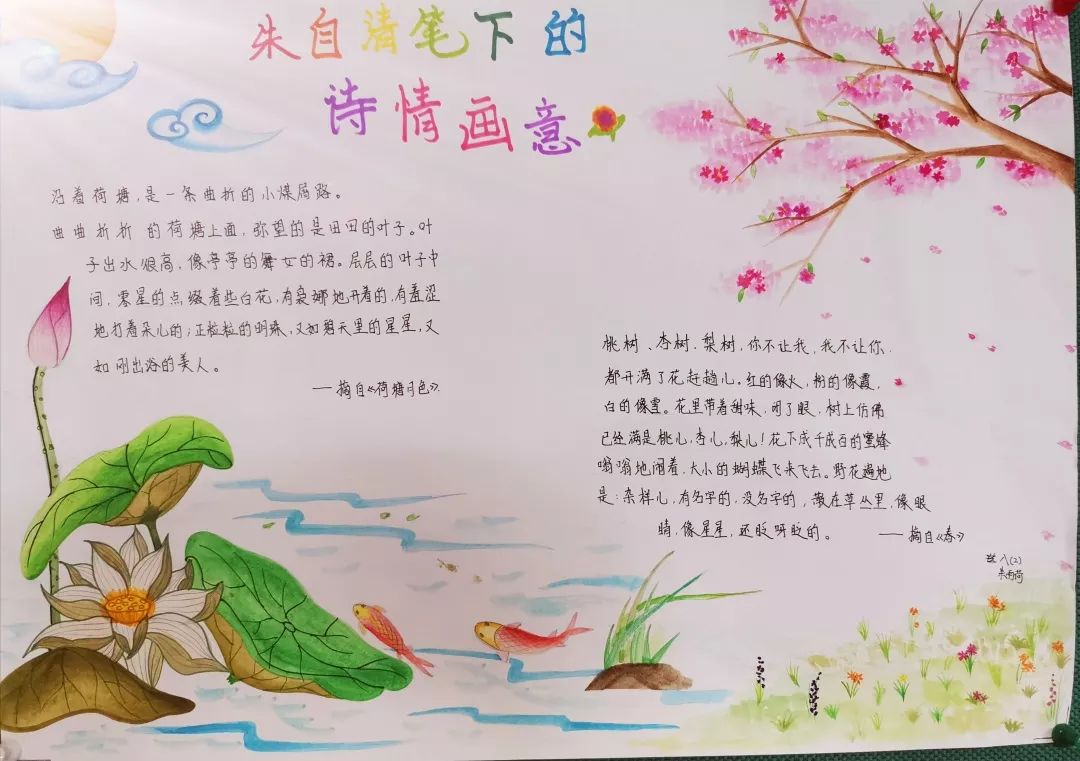 朱自清笔下的
诗情画意
沿着荷塘,是一条曲折的小煤屑路。
曲曲折折 的荷塘上面,弥望的是田田的叶子。叶
子出水很高,像亭亭的舞女的裙。层层的叶子中
间,零星的点缀着些白花,有袅娜地开着的,有羞涩
地打着朵儿的;正粒粒的明珠,又如碧天里的星星,又
如刚出浴的美人。
——摘自《荷塘月色》.
桃树、杏树、梨树,你不让我,我不让你.
都开满了花赶趟儿。红的像火,粉的像霞,
白的像雪。花里带着甜味,闭了眼,树上仿佛
已经满是桃儿,杏儿,梨儿!花下成千成百的蜜蜂
嗡嗡地闹着,大小的蝴蝶飞来飞去。野花遍地
是:杂样儿,有名字的,没名字的,散在草丛里,像眼
睛,像星星,还眨呀眨的。 ——摘自《春》
八(2)
朱雨荷